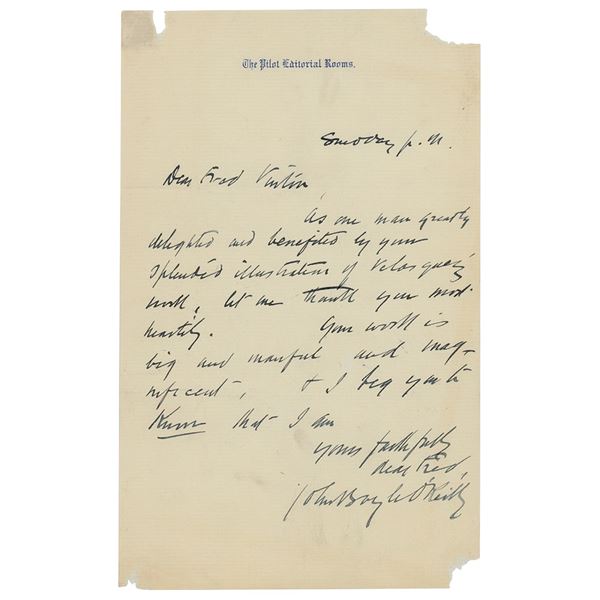 The Pilot Editorial Rooms.
Sunday p.m.
Dear Fred Vinton,
As one man greatly
delighted and benefited by your
splendid illustration of Velasquez's
work, let me thank you most
heartily. Your work is
big and manful and mag-
nificent, & I beg you to
Know that I am
yours faithfully
dear Fred,
John Boyle O'Reilly